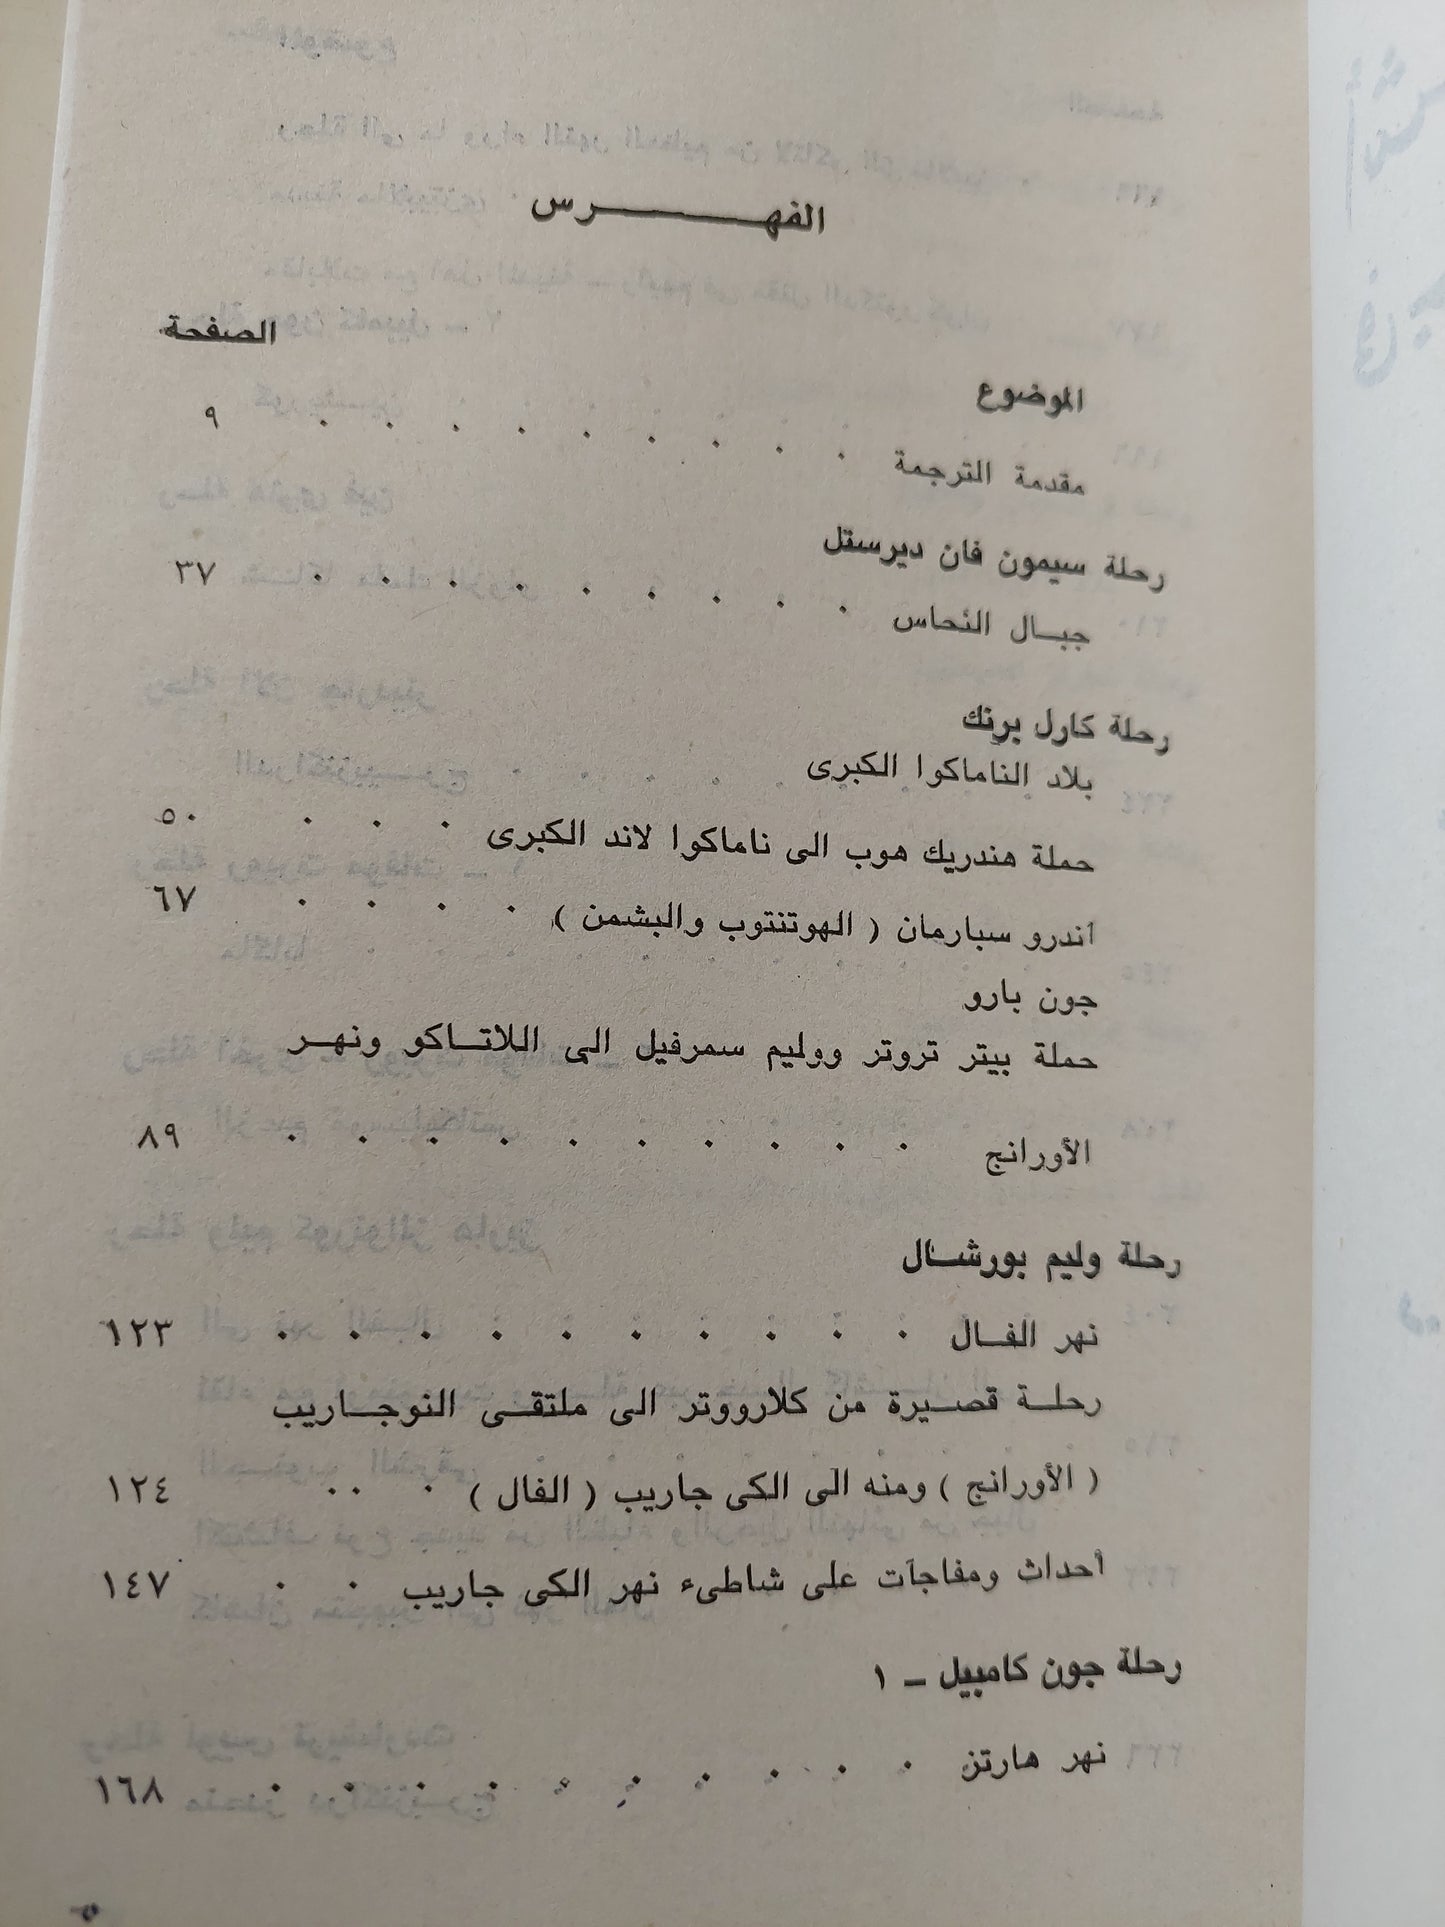 الفهرس
الصفحة
الموضوع
مقدمة الترجمة . . . . . . . . . ٩
رحلة سيمون فان ديرستل
جبال النحاس . . . . . . . . . ٣٧
رحلة كارل برنك
بلاد الناماكوا الكبرى
حملة هندريك هوب الى ناماكوا لاند الكبرى . . . ٥٠
أندرو سبارمان ( الهوتنتوب والبشمن ) . . . . ٦٧
جون بارو
حملة بيتر تروتر ووليم سمرفيل الى اللاتاكو ونهر
الأورانج . . . . . . . . . . ٨٩
رحلة وليم بورشال
نهر الفال . . . . . . . . . . ١٢٣
رحلة قصيرة من كلارووتر الى ملتقى النوجاريب
( الأورانج ) ومنه الى الكى جاريب ( الفال ) . . . ١٢٤
أحداث ومفاجآت على شاطىء نهر الكى جاريب . . ١٤٧
رحلة جون كامبيل – ١
نهر هارتز . . . . . . . . . . ١٦٨